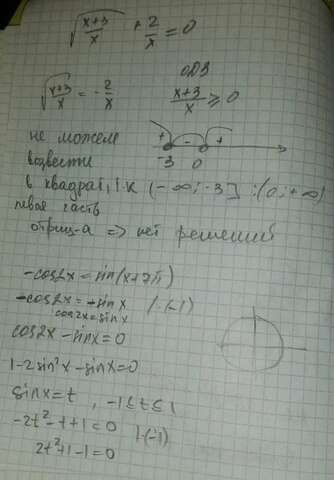 √((x+3)/x) + 2/x = 0
ОДЗ
√((x+3)/x) = -2/x
(x+3)/x ≥ 0
не можем
+ - +
-3 0
возвести
в квадрат, т.к (-∞; -3] ; (0; +∞)
левая часть
отриц-а => нет решений
-cos2x = sin(x+7π)
-cos2x = -sin x |·(-1)
cos2x = sin x
cos2x - sinx = 0
1-2sin²x - sinx = 0
sinx = t , -1 ≤ t ≤ 1
-2t² - t + 1 = 0 |·(-1)
2t² + 1 - 1 = 0